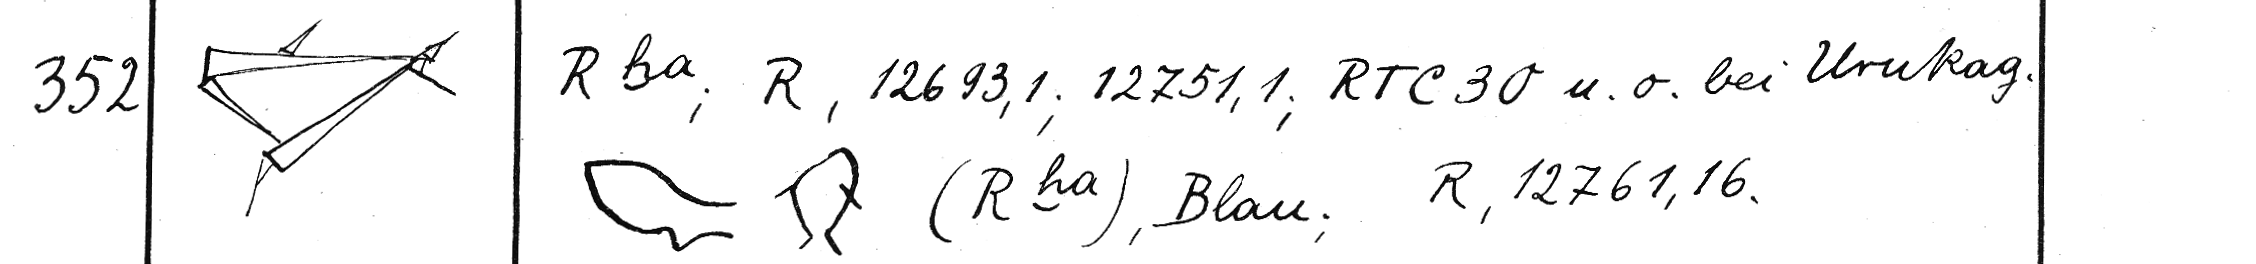 352 R ḫa; R, 12693,1; 12751,1; RTC 30 u. o. bei Urukag.
(R ḫa), Blau; R, 12761,16.